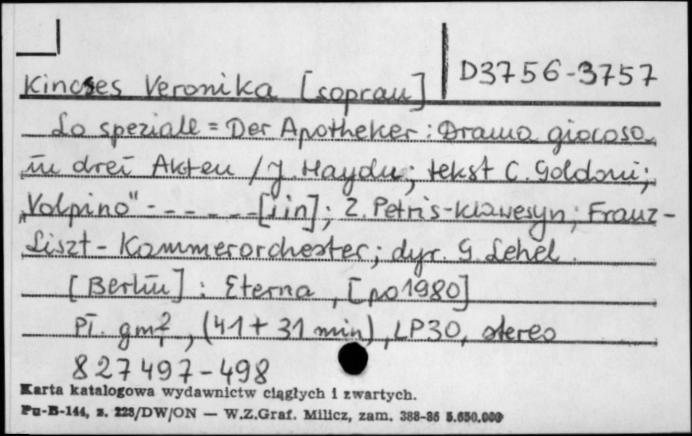 D3756-3757
Kincses Veronika [sopran]
Lo speziale = Der Apotheker : Drama giocoso
in drei Akten / J. Haydn ; tekst C. Goldoni ;
„Volpino" - - - - - - [i in] ; Z. Petris-klawesyn ; Franz-
Liszt - Kammerorchester ; dyr. G. Lehel .
[Berlin] : Eterna , [po 1980]
pł. gmf , (41 + 31 min) , LP30 , stereo
827497-498
Karta katalogowa wydawnictw ciągłych i zwartych.
Pu-B-144, z. 228/DW/ON — W.Z.Graf. Milicz, zam. 388-86 5.650.000